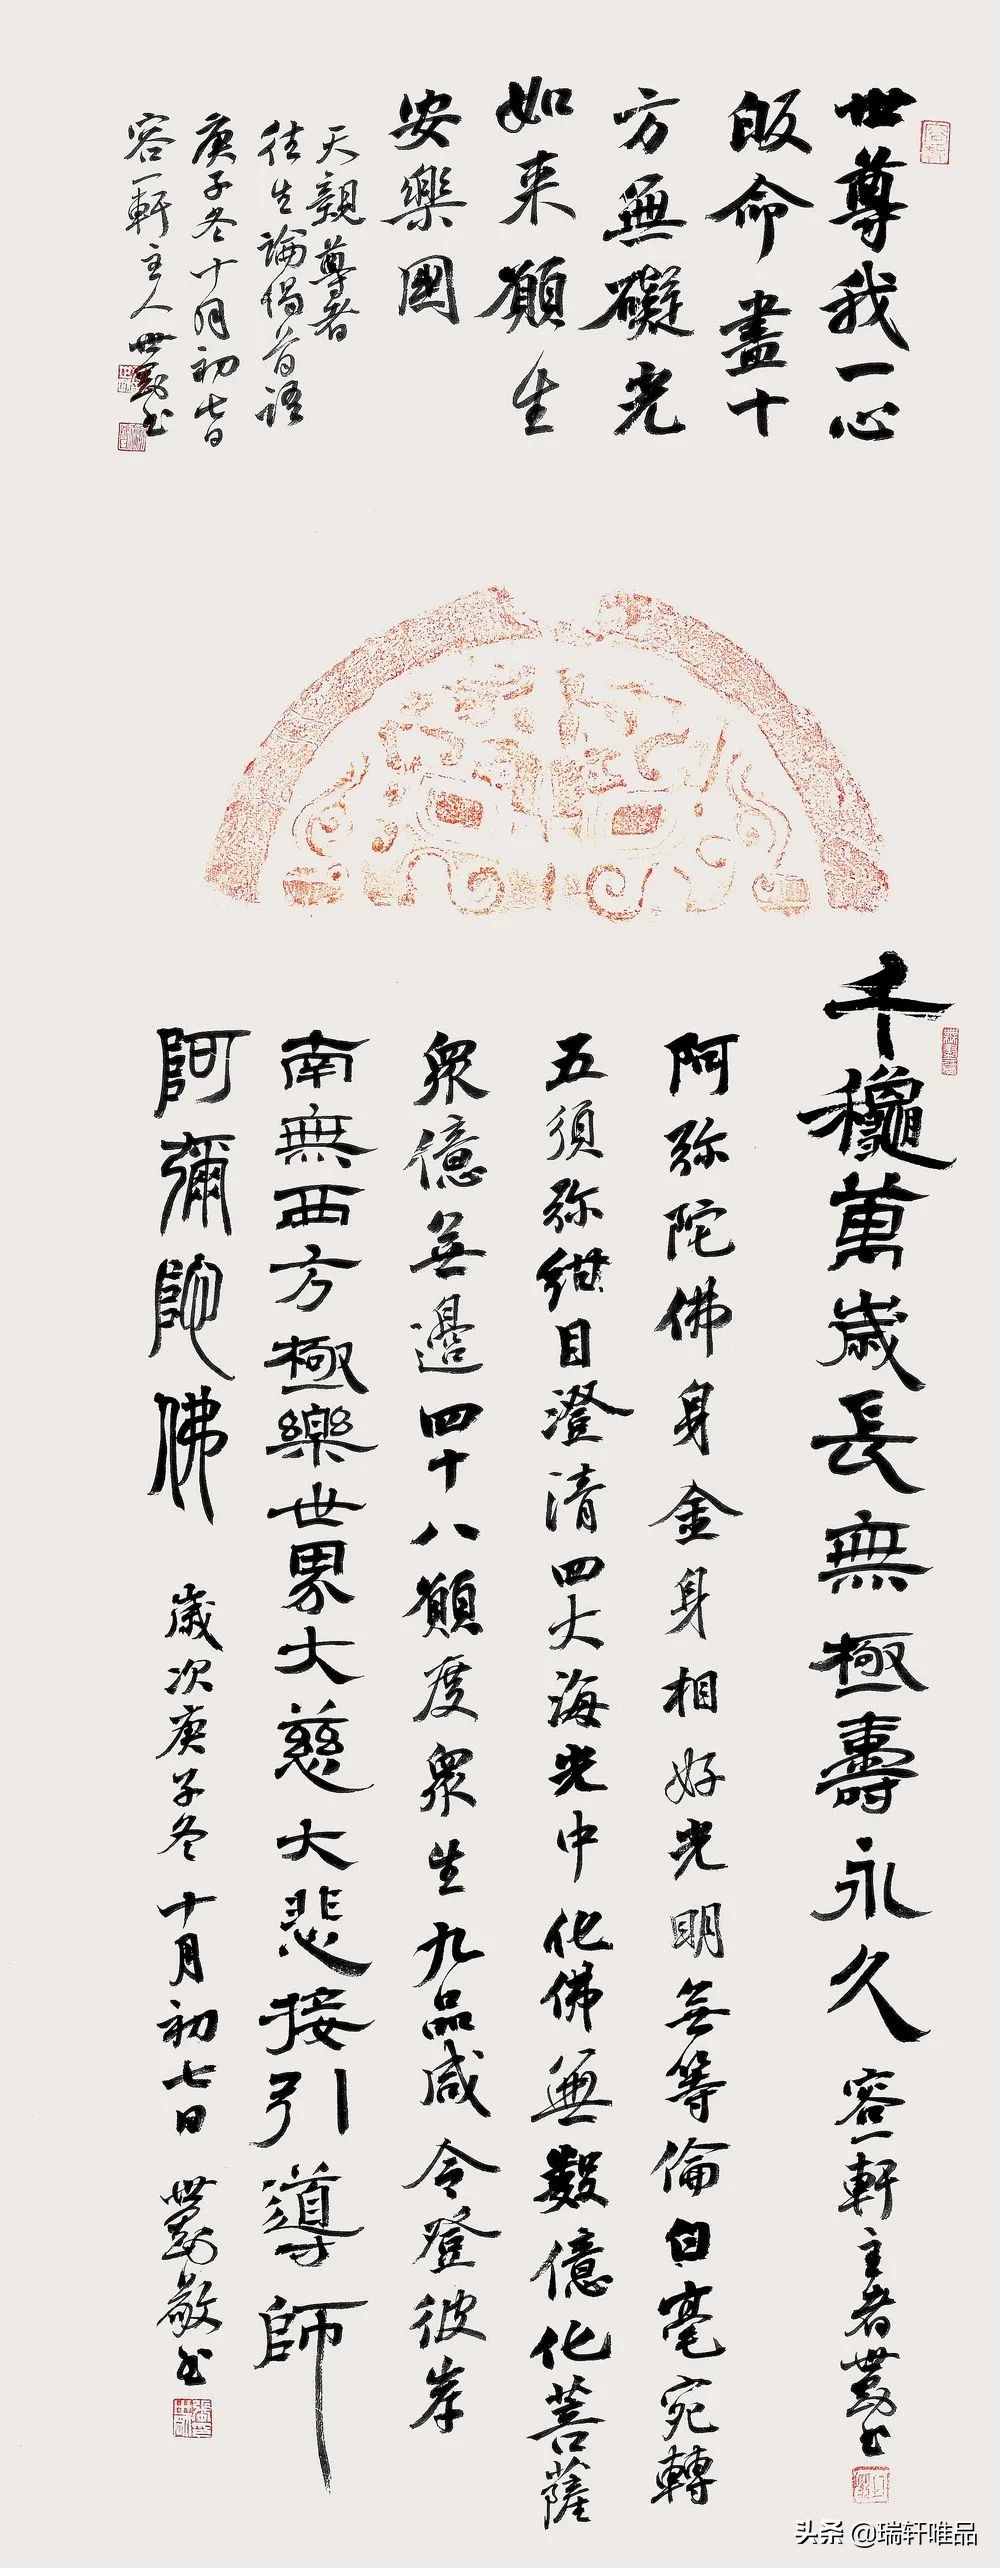 世尊我一心
皈命盡十
方無礙光
如来願生
安樂國
天親尊者
往生論偈首語
庚子冬十月初七日
容一軒主人世书
千龝萬歲長無極壽永久 容一軒主者世书
阿弥陀佛身金身相好光明無等倫白毫宛轉
五須弥紺目澄清四大海光中化佛無數億化菩薩
衆億無邊四十八願度衆生九品咸令登彼岸
南無西方極樂世界大慈大悲接引導師
阿彌陀佛 歲次庚子冬十月初七日 世敬书
头条 @瑞轩唯品